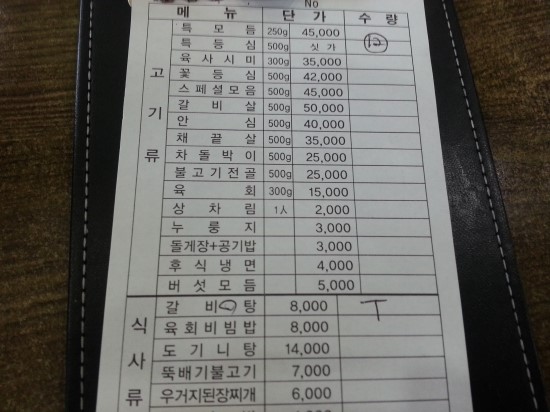 No
메 뉴 단 가 수 량
고 기 류
특 모 듬 250g 45,000
특 등 심 500g 싯 가
육 사 시 미 300g 35,000
꽃 등 심 500g 42,000
스페셜모음 500g 45,000
갈 비 살 500g 50,000
안 심 500g 40,000
채 끝 살 500g 35,000
차 돌 박 이 500g 25,000
불고기전골 500g 25,000
육 회 300g 15,000
상 차 림 1人 2,000
누 룽 지 3,000
돌게장+공기밥 3,000
후 식 냉 면 4,000
버 섯 모 듬 5,000
식 사 류
갈 비 탕 8,000 T
육회비빔밥 8,000
도 기 니 탕 14,000
뚝배기불고기 7,000
우거지된장찌개 6,000